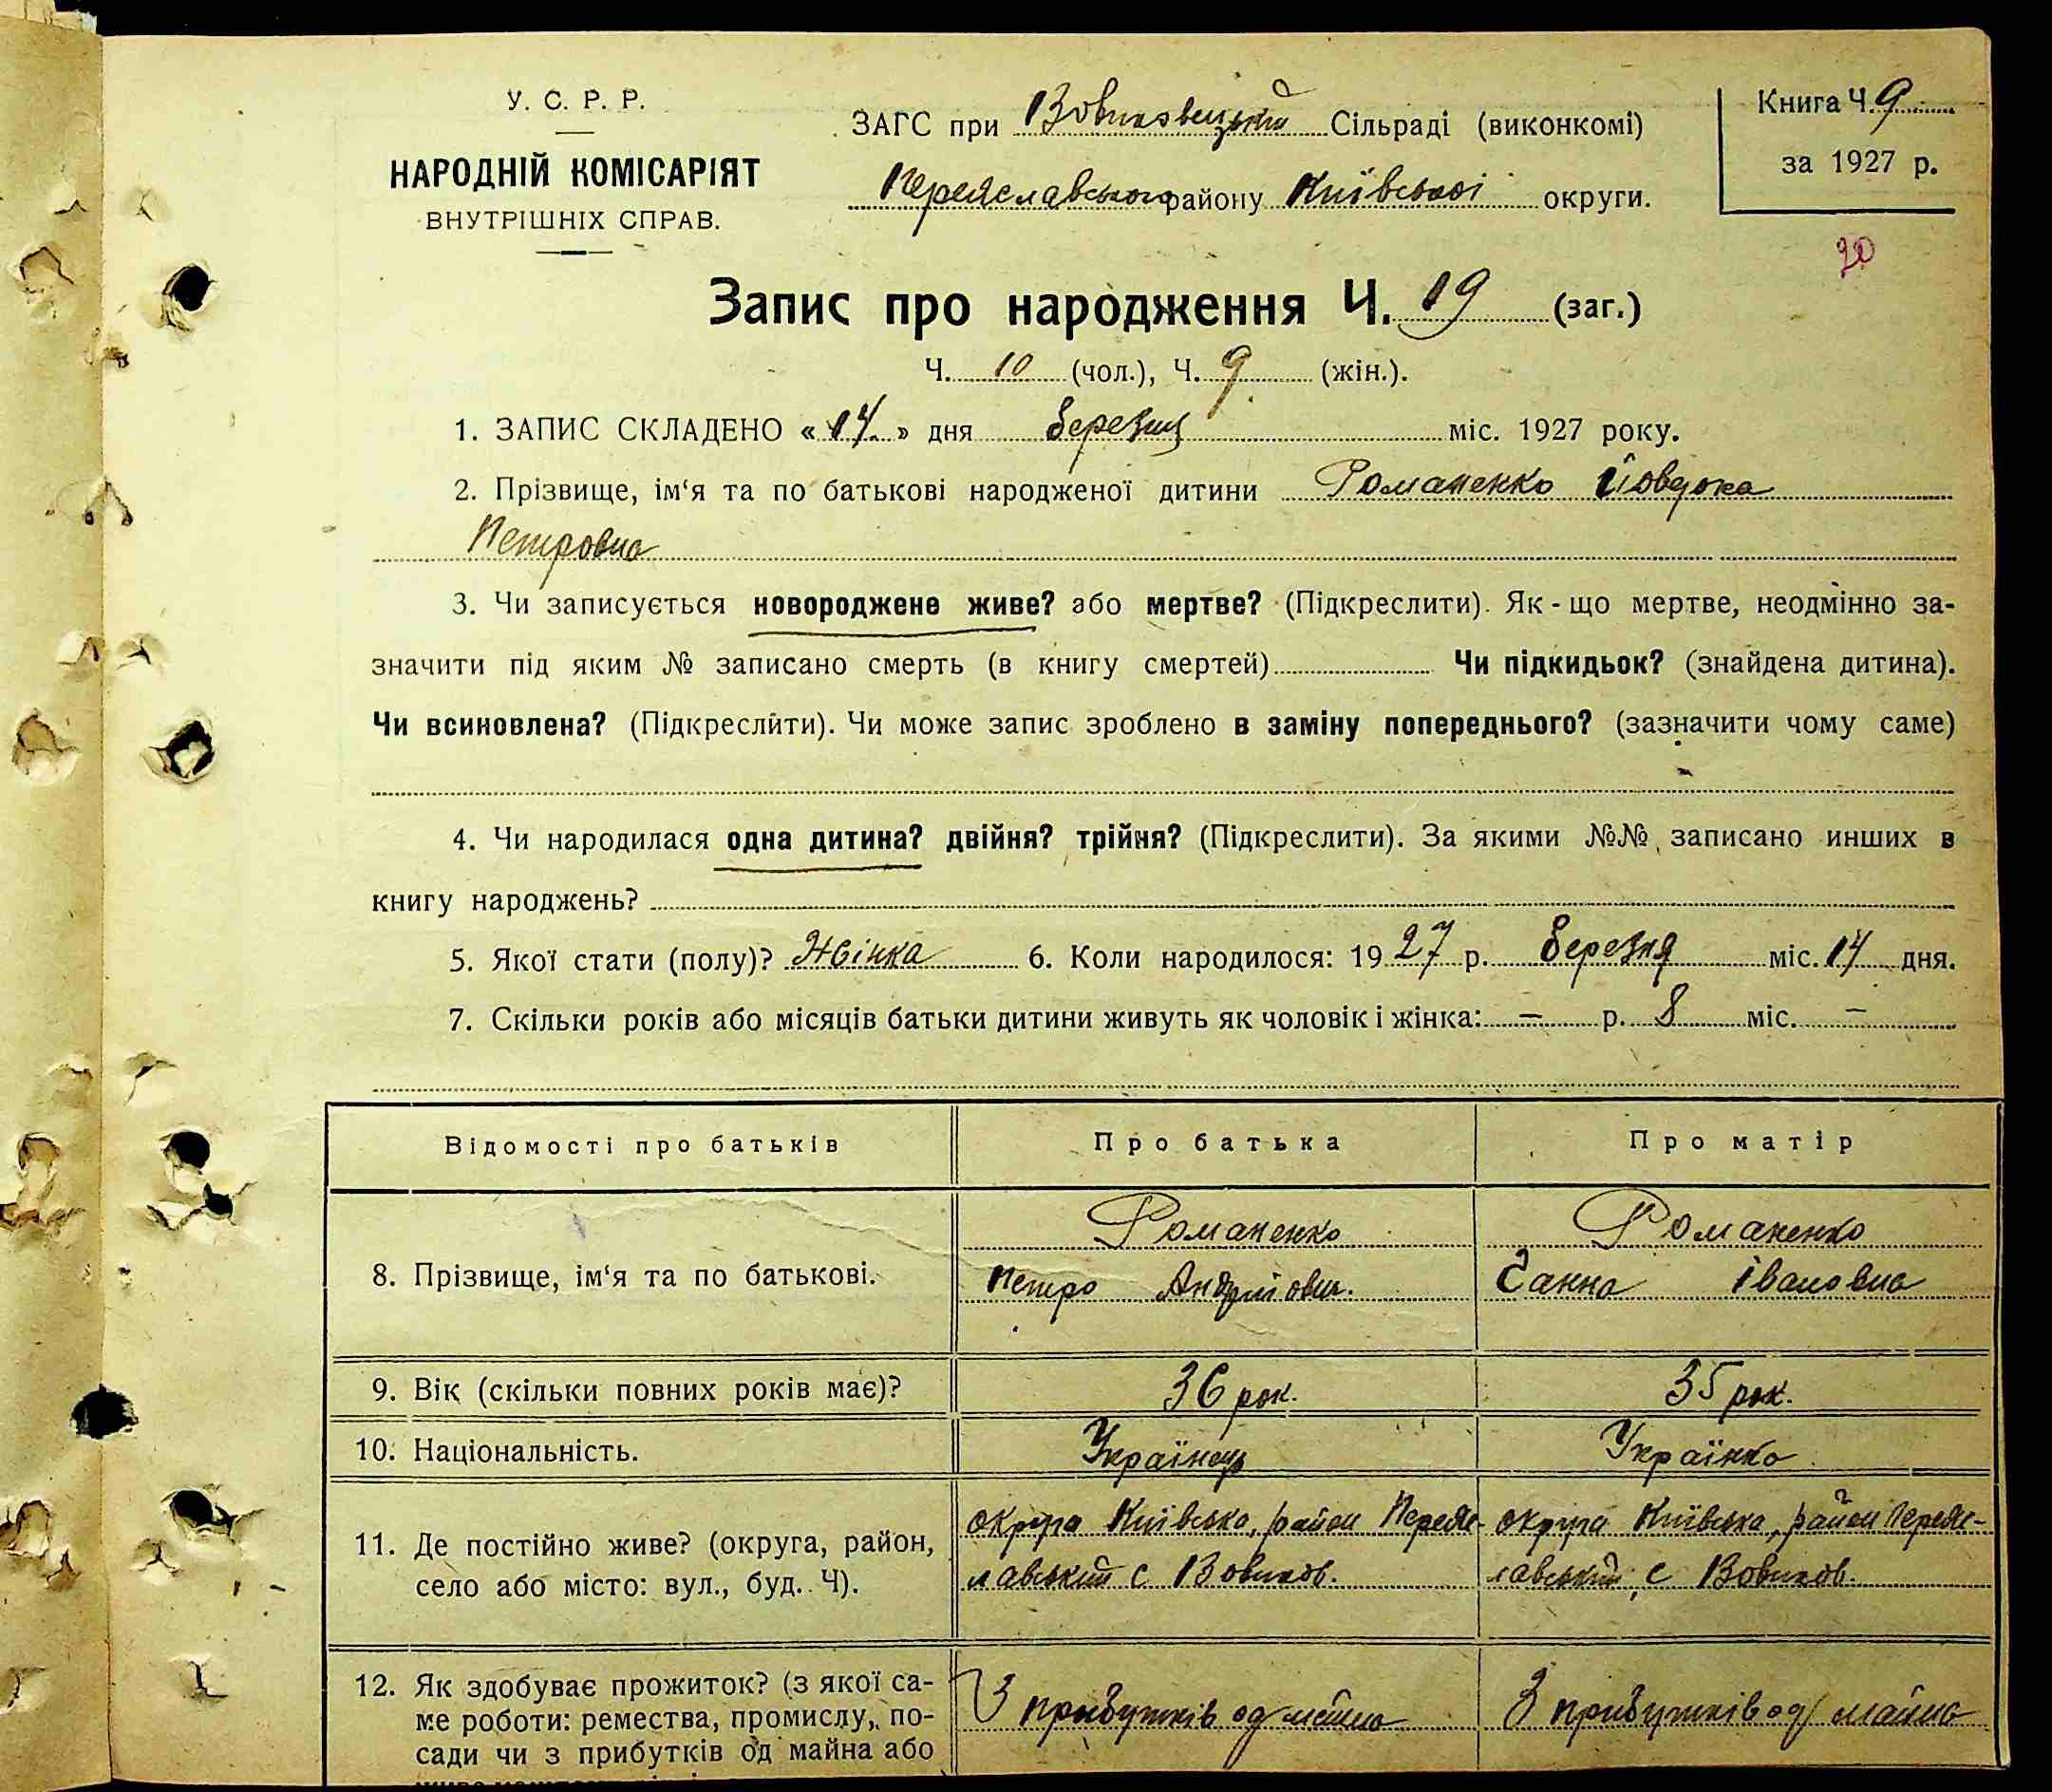 У. С. Р. Р.
НАРОДНІЙ КОМІСАРІЯТ
ВНУТРІШНІХ СПРАВ.
ЗАГС при Сільраді (виконкомі)
Переяславського району Київської округи.
Книга Ч. 9
за 1927 р.
20
Запис про народження Ч. 19 (заг.)
Ч. 10 (чол.), Ч. 9 (жін.).
1. ЗАПИС СКЛАДЕНО « 14 » дня Березня міс. 1927 року.
2. Прізвище, ім‘я та по батькові народженої дитини Романенко Йовдоха
Петровна
3. Чи записується новороджене живе? або мертве? (Підкреслити). Як-що мертве, неодмінно за-
значити під яким № записано смерть (в книгу смертей) Чи підкидьок? (знайдена дитина).
Чи всиновлена? (Підкреслити). Чи може запис зроблено в заміну попереднього? (зазначити чому саме)
4. Чи народилася одна дитина? двійня? трійня? (Підкреслити). За якими №№ записано инших в
книгу народжень?
5. Якої стати (полу)? Жінка 6. Коли народилося: 1927 р. Березня міс. 14 дня.
7. Скільки років або місяців батьки дитини живуть як чоловік і жінка: — р. 8 міс. —
Відомості про батьків Про батька Про матір
8. Прізвище, ім‘я та по батькові. Романенко Романенко
Петро Андрійович. Ганна Івановна
9. Вік (скільки повних років має)? 36 рок. 35 рок.
10. Національність. Українець Українка
11. Де постійно живе? (округа, район, село або місто: вул., буд. Ч). округа Київська, район Переяс- округа Київська, район Переяс-
лавський с Вовчков. лавський, с Вовчков.
12. Як здобуває прожиток? (з якої са-
ме роботи: ремества, промислу, по- З прибутків од майна З прибутків од майна
сади чи з прибутків од майна або